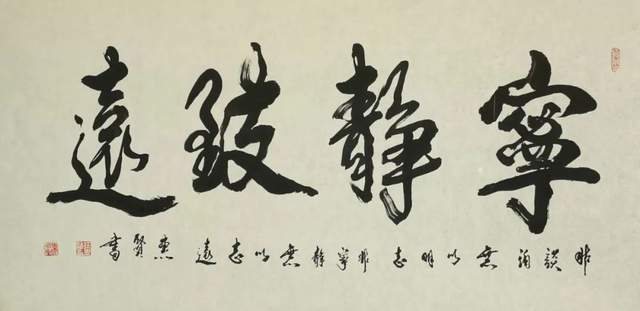 寧靜致遠
非淡泊無以明志非寧靜無以志遠 賢書